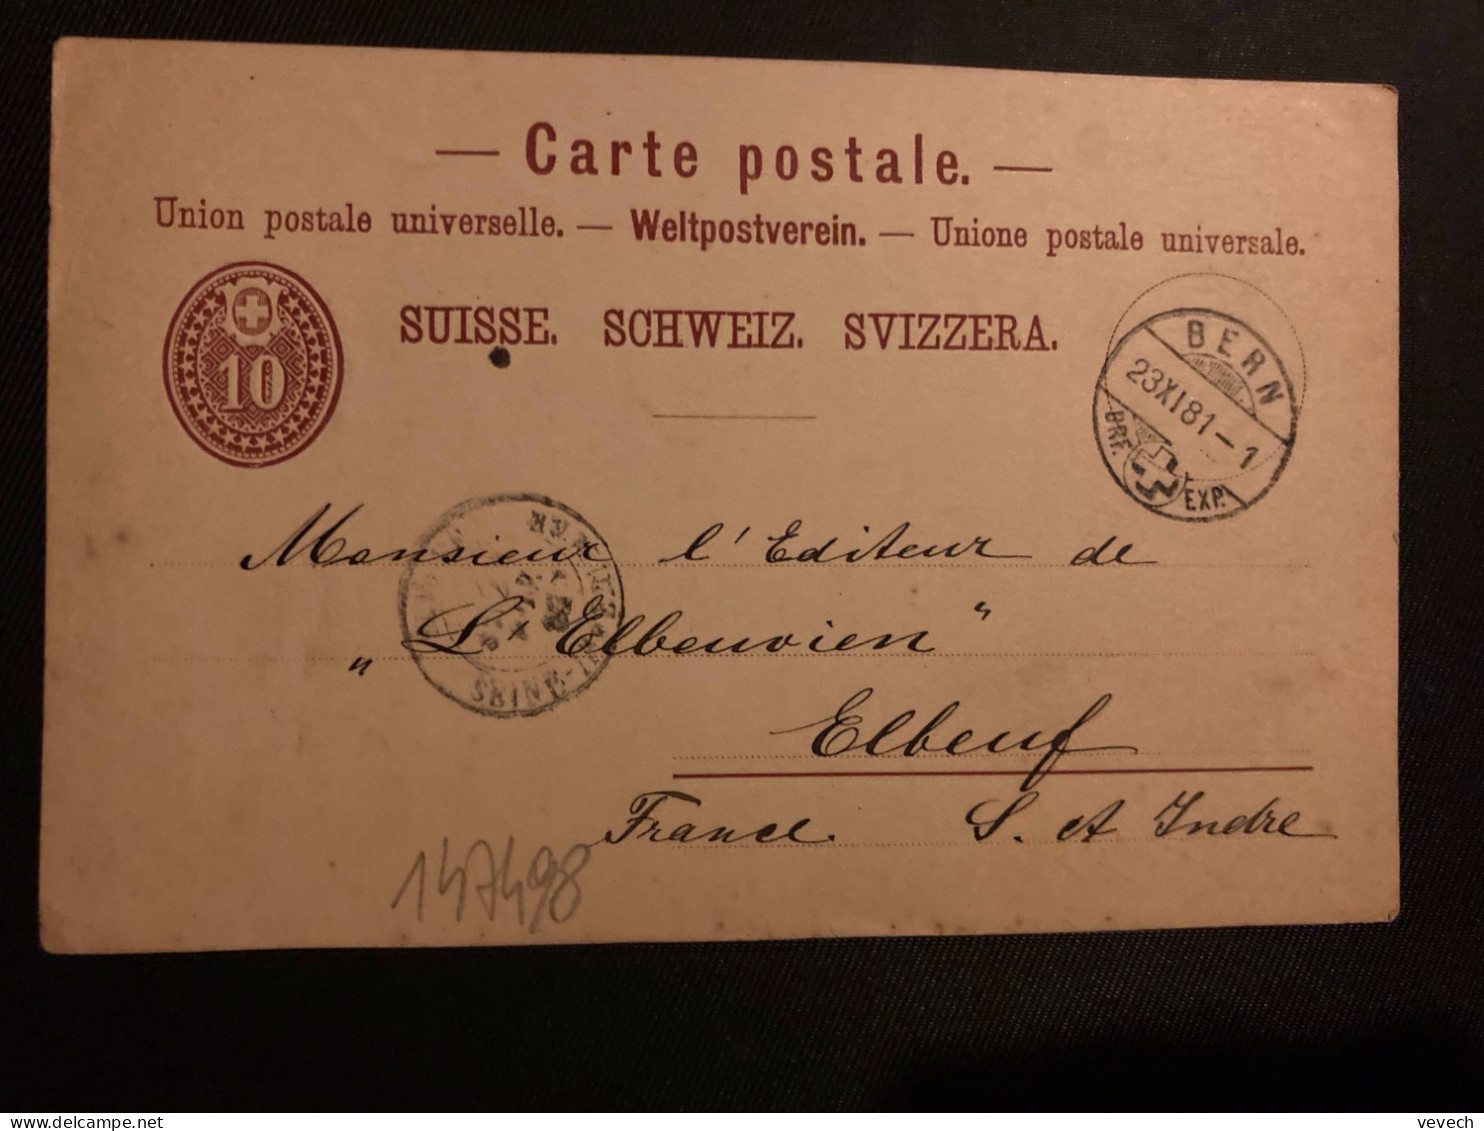 — Carte postale. —
Union postale universelle. — Weltpostverein. — Unione postale universale.
10
SUISSE. SCHWEIZ. SVIZZERA.
BERN
23XI81–1
BRF. EXP.
Monsieur l'Editeur de
„L'Elbeuvien"
SEINE-
Elbeuf
France. S. et Indre
147498
vevech